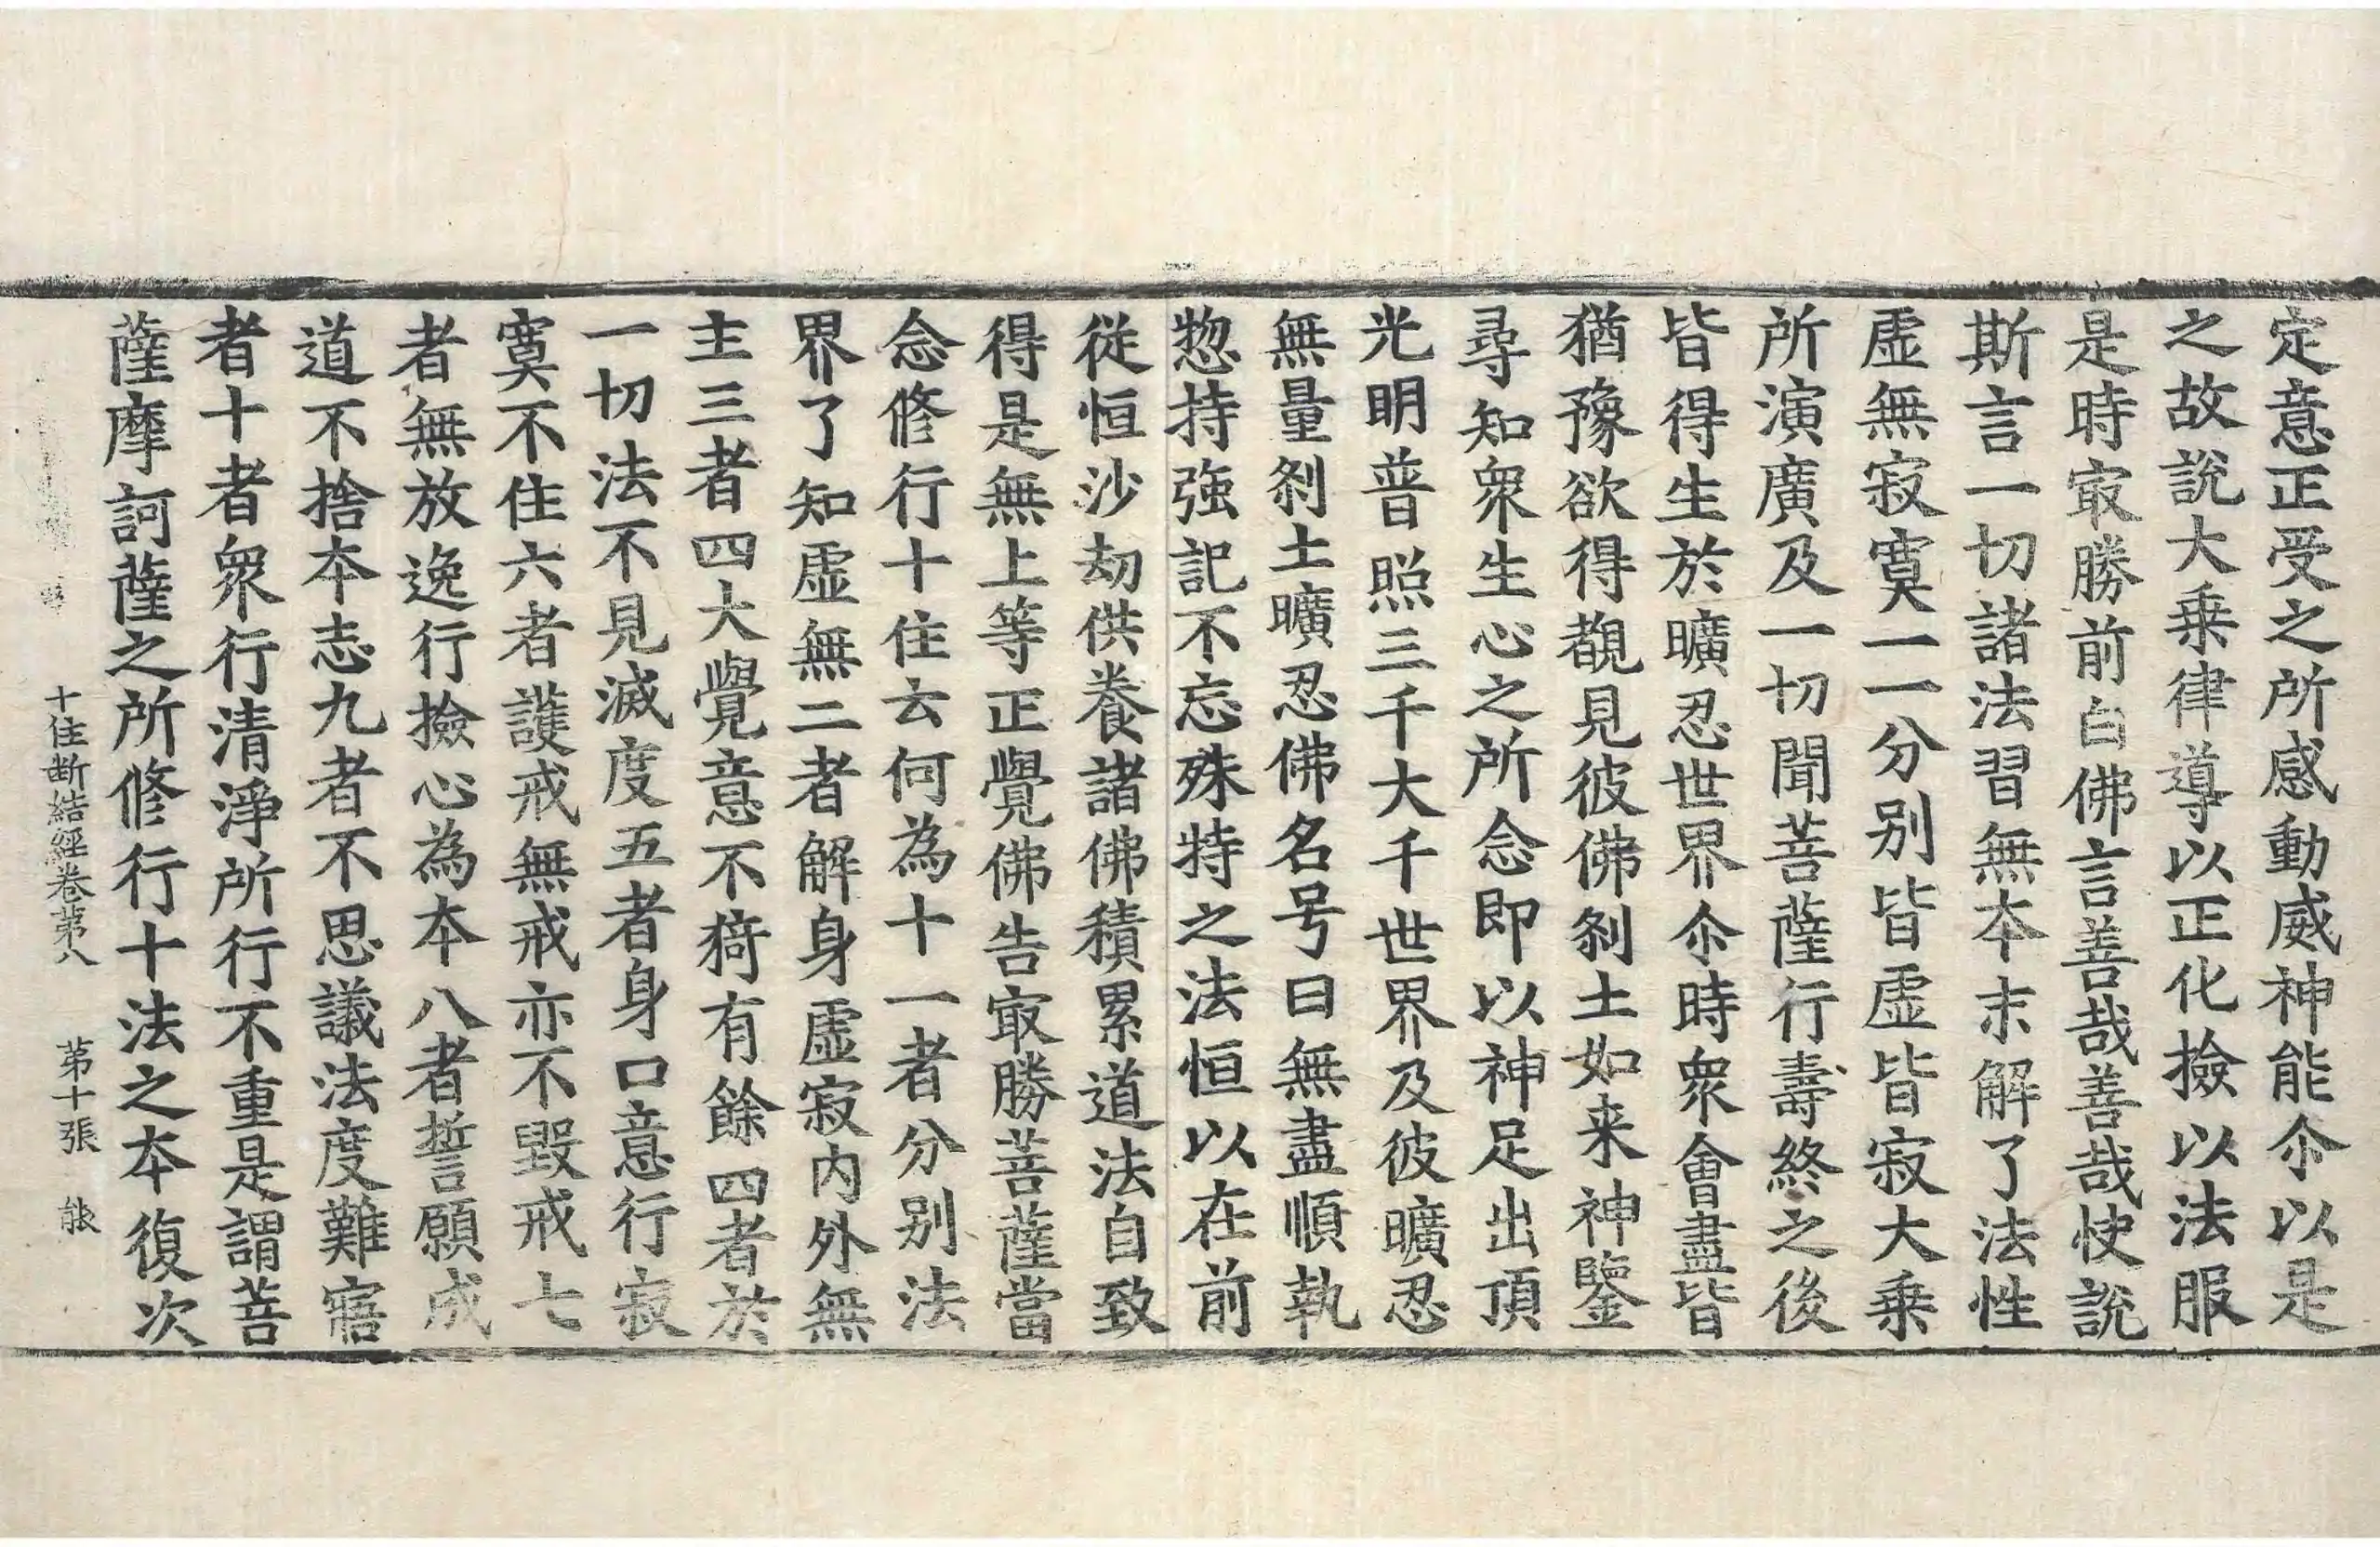 定意正受之所感動威神能尒以是
之故說大乗律導以正化撿以法服
是時㝡勝前白佛言善哉善哉快說
斯言一切諸法習無本末解了法性
虛無寂寞一一分別皆虛皆寂大乗
所演廣及一切聞菩薩行壽終之後
皆得生於曠忍世界尒時衆會盡皆
猶豫欲得覩見彼佛剎土如来神鑒
尋知衆生心之所念即以神足出頂
光明普照三千大千世界及彼曠忍
無量剎土曠忍佛名号曰無盡順執
惣持強記不忘殊特之法恒以在前
從恒沙劫供養諸佛積累道法自致
得是無上等正覺佛告㝡勝菩薩當
念修行十住云何為十一者分別法
界了知虛無二者解身虛寂內外無
主三者四大覺意不猗有餘四者於
一切法不見滅度五者身口意行寂
寞不住六者護戒無戒亦不毀戒七
者無放逸行撿心為本八者誓願成
道不捨本志九者不思議法度難寤
者十者衆行清淨所行不重是謂菩
薩摩訶薩之所修行十法之本復次
十住断結經卷苐八 苐十張 能